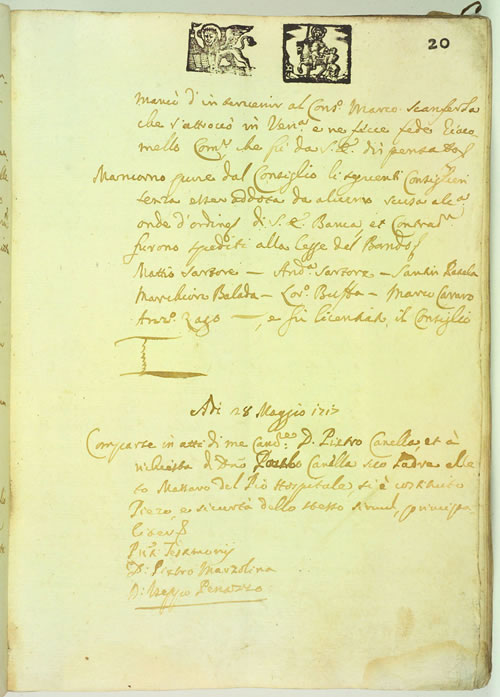 20
mancò d'intervenir al Cons.º Marco Scanferla
che s'attrovò in Ven.ª e ne fece fede Giaco
mello Com.r che fù da S.E. dispensato
Mancorno pure dal Consiglio li seguenti Consiglieri
senza esser addotta da alcuno scusa
onde d'ordine di S.E. Banca, et Contrad.
furono spediti alla Legge del Bando
Mattio Sartore — And.ª Sartore — Santin
Marchioro Belada — Lor.º Buffa — Marco Cavaro
Ant.º Zago — , e fù licentiato il Consiglio
Adi 28 Maggio 1717
Comparse in atti di me Canc. D. Pietro Canella et à
richiesta di Canella suo Padre elle
to Massaro del Pio Hospitale si è costituito
Piezo, e sicurtà dello stesso simul, principal
Testimonij
D. Pietro Marzolina
D. Penazzo